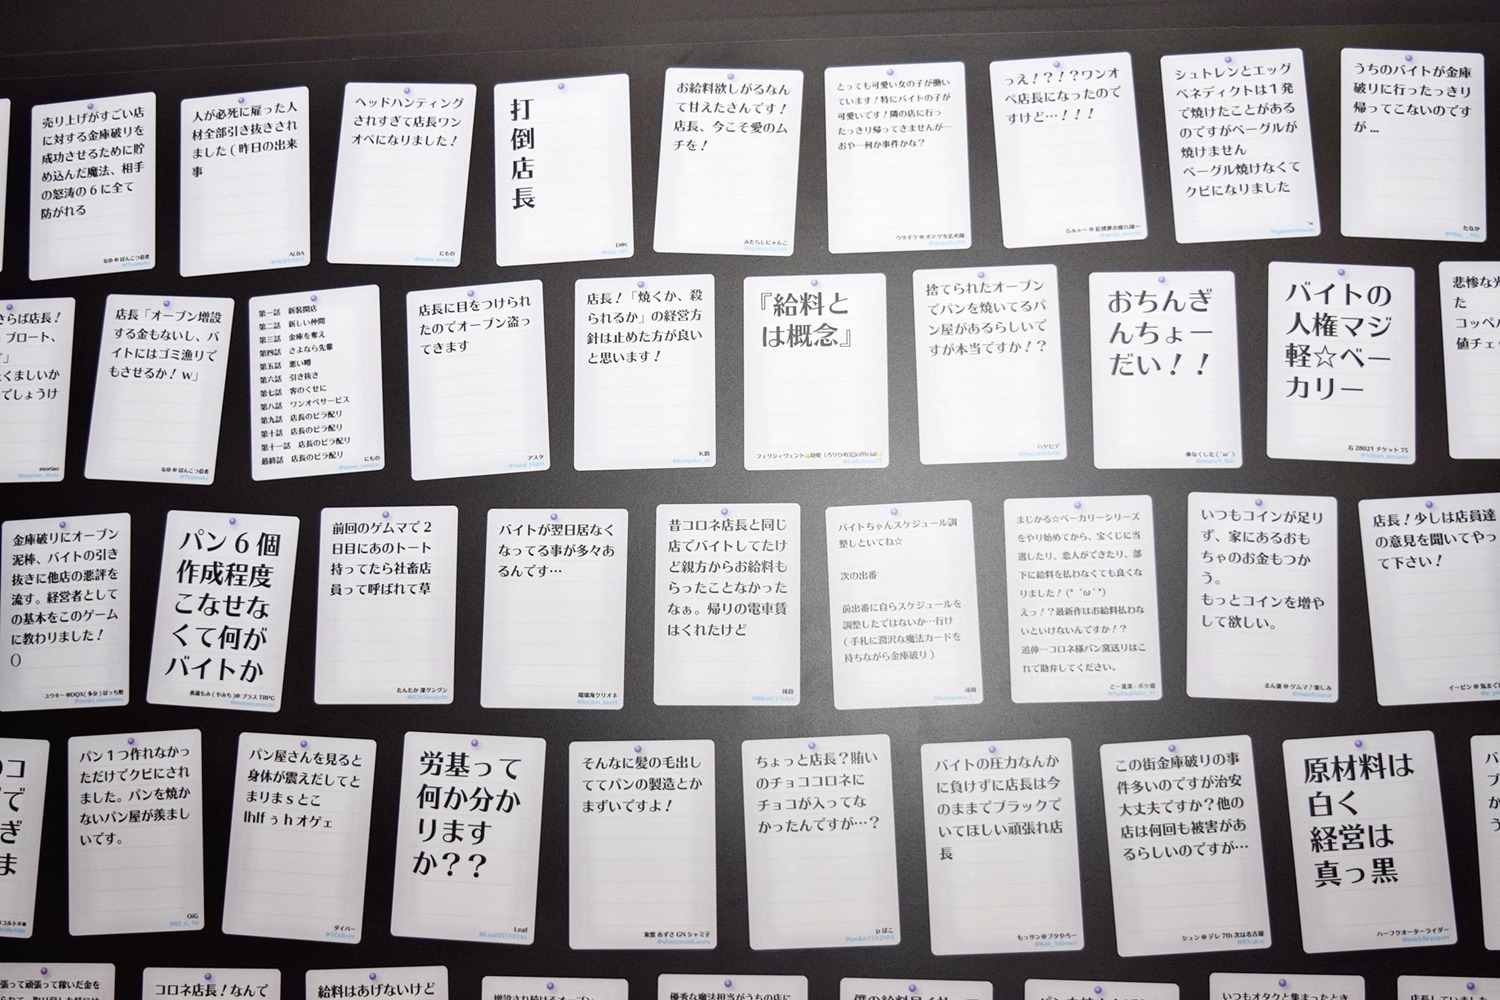 売り上げがすごい店
に対する金庫破りを
成功させるために貯
め込んだ魔法、相手
の怒涛の6に全て
防がれる
なゆ@ぽんこつ信者
人が必死に雇った人
材全部引き抜きされ
ました(昨日の出来
事
ALBA
ヘッドハンティング
されすぎて店長ワン
オペになりました!
にもの
打倒店長
お給料欲しがるなん
て甘えたさんです!
店長、今こそ愛のム
チを!
みたらしにゃんこ
とっても可愛い女の子が働い
ています!特にバイトの子が
可愛いです!隣の店に行っ
たっきり帰ってきませんが…
おや…何か事件かな?
ウサギク@ボドゲを広め隊
っえ!?!?ワンオ
ペ店長になったので
すけど…!!!
シュトレンとエッグ
ベネディクトは1発
で焼けたことがある
のですがベーグルが
焼けません
ベーグル焼けなくて
クビになりました
うちのバイトが金庫
破りに行ったっきり
帰ってこないのです
が…
たなか
さらば店長!
moriao
店長「オーブン増設
する金もないし、バ
イトにはゴミ漁りで
もさせるか!w」
なゆ@ぽんこつ信者
第一話 新装開店
第二話 新しい仲間
第三話 金庫を奪え
第四話 さよなら先輩
第五話 悪い噂
第六話 引き抜き
第七話 客のくせに
第八話 ワンオペサービス
第九話 店長のビラ配り
第十話 店長のビラ配り
第十一話 店長のビラ配り
最終話 店長のビラ配り
にもの
店長に目をつけられ
たのでオーブン盗っ
てきます
アスタ
店長!「焼くか、殺
られるか」の経営方
針は止めた方が良い
と思います!
『給料と
は概念』
捨てられたオーブン
でパンを焼いてるパ
ン屋があるらしいで
すが本当ですか!?
ハヤヒデ
おちんぎ
んちょー
だい!!
@なくした(´ω`)
バイトの
人権マジ
軽☆ベー
カリー
石28021チケット75
悲惨な光
た
コッペパ
値チェッ
金庫破りにオーブン
泥棒、バイトの引き
抜きに他店の悪評を
流す。経営者として
の基本をこのゲーム
に教わりました!
()
ユウキー@DQX(多分)ぼっち勢
パン6個
作成程度
こなせな
くて何が
バイトか
前回のゲムマで2
日目にあのトート
持ってたら社畜店
員って呼ばれて草
バイトが翌日居なく
なってる事が多々あ
るんです…
瑠璃海クリオネ
昔コロネ店長と同じ
店でバイトしてたけ
ど親方からお給料も
らったことなかった
なぁ。帰りの電車賃
はくれたけど
バイトちゃんスケジュール調
整しといてね☆
次の出番
前出番に自らスケジュールを
調整したではないか…行け
(手札に潤沢な魔法カードを
持ちながら金庫破り)
まじかる☆ベーカリーシリーズ
をやり始めてから、宝くじに当
選したり、恋人ができたり、部
下に給料を払わなくても良くな
りました!(*´ω`*)
えっ!?最新作はお給料払わな
いといけないんですか!?
追伸…コロネ様パン窯送りはこ
れで勘弁してください。
いつもコインが足り
ず、家にあるおも
ちゃのお金もつか
う。
もっとコインを増や
して欲しい。
まん妻@ゲムマ!楽しみ
店長!少しは店員達
の意見を聞いてやっ
て下さい!
パン1つ作れなかっ
ただけでクビにされ
ました。パンを焼か
ないパン屋が羨まし
いです。
OiG
パン屋さんを見ると
身体が震えだしてと
まりまsとこ
lhlfぅhオゲェ
ダイバー
労基って
何か分か
ります
か??
Leaf
そんなに髪の毛出し
ててパンの製造とか
まずいですよ!
東雲 あずさGNシャミ子
ちょっと店長?賄い
のチョココロネに
チョコが入ってな
かったんですが…?
pぽこ
バイトの圧力なんか
に負けずに店長は今
のままでブラックで
いてほしい頑張れ店
長
もっサン@ブタやろー
この街金庫破りの事
件多いのですが治安
大丈夫ですか?他の
店は何回も被害があ
るらしいのですが…
シュン@デレ7th次は名古屋
原材料は
白く
経営は
真っ黒
ハーフクオーターライダー
張って頑張って稼いだ金を
コロネ店長!なんで
給料はあげないけど
増設され続けるオーブン
優秀な魔法担当がうちの店に
いつもオタクと集まったとき